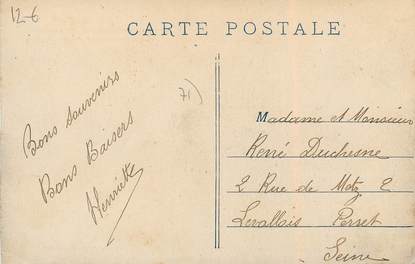 12-6
CARTE POSTALE
71)
Bons souvenirs
Bons Baisers
Henriette
Madame et Monsieur
René Duchesne
2 Rue de Metz
Levallois Perret
Seine